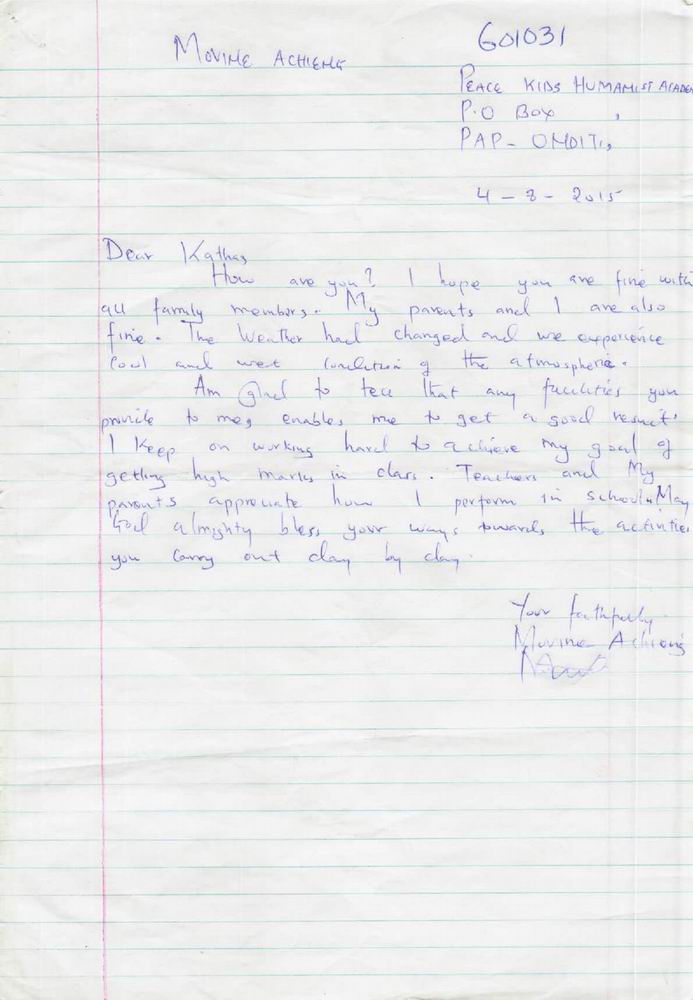 MOVINE ACHIENG
601031
PEACE KIDS HUMANIST ACADEM
P.O BOX ,
PAP-
4 - 8 - 2015
Dear
How are you? I hope you are fine with
all family members. My parents and I are also
fine. The Weather had changed and we experience
Cool and wet condition of the atmospherie.
Am glad to tell that any facilities you
provide to me, enables me to get a good result.
I Keep on working hard to achieve my goal of
getting high marks in class. Teachers and My
parents appreciate how I perform in school. May
God almighty bless your ways towards the activities
you carry out day by day.
Your faithfully
Movine Achieng